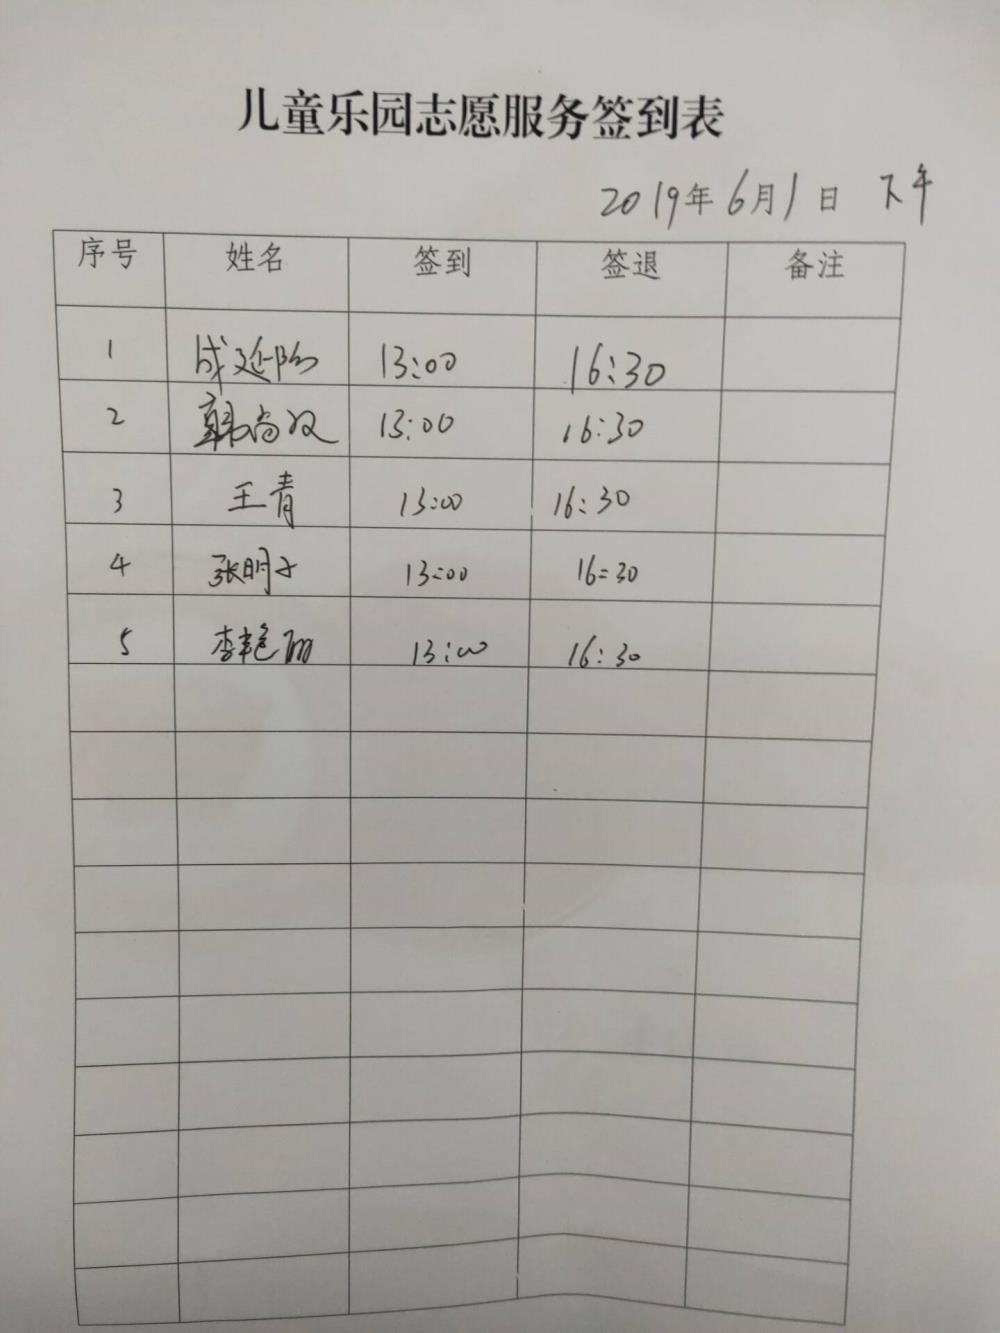 儿童乐园志愿服务签到表
2019年6月1日 下午
序号 姓名 签到 签退 备注
1 成延 13:00 16:30
2 韩尚 13:00 16:30
3 王青 13:00 16:30
4 张明子 13:00 16:30
5 李艳丽 13:00 16:30